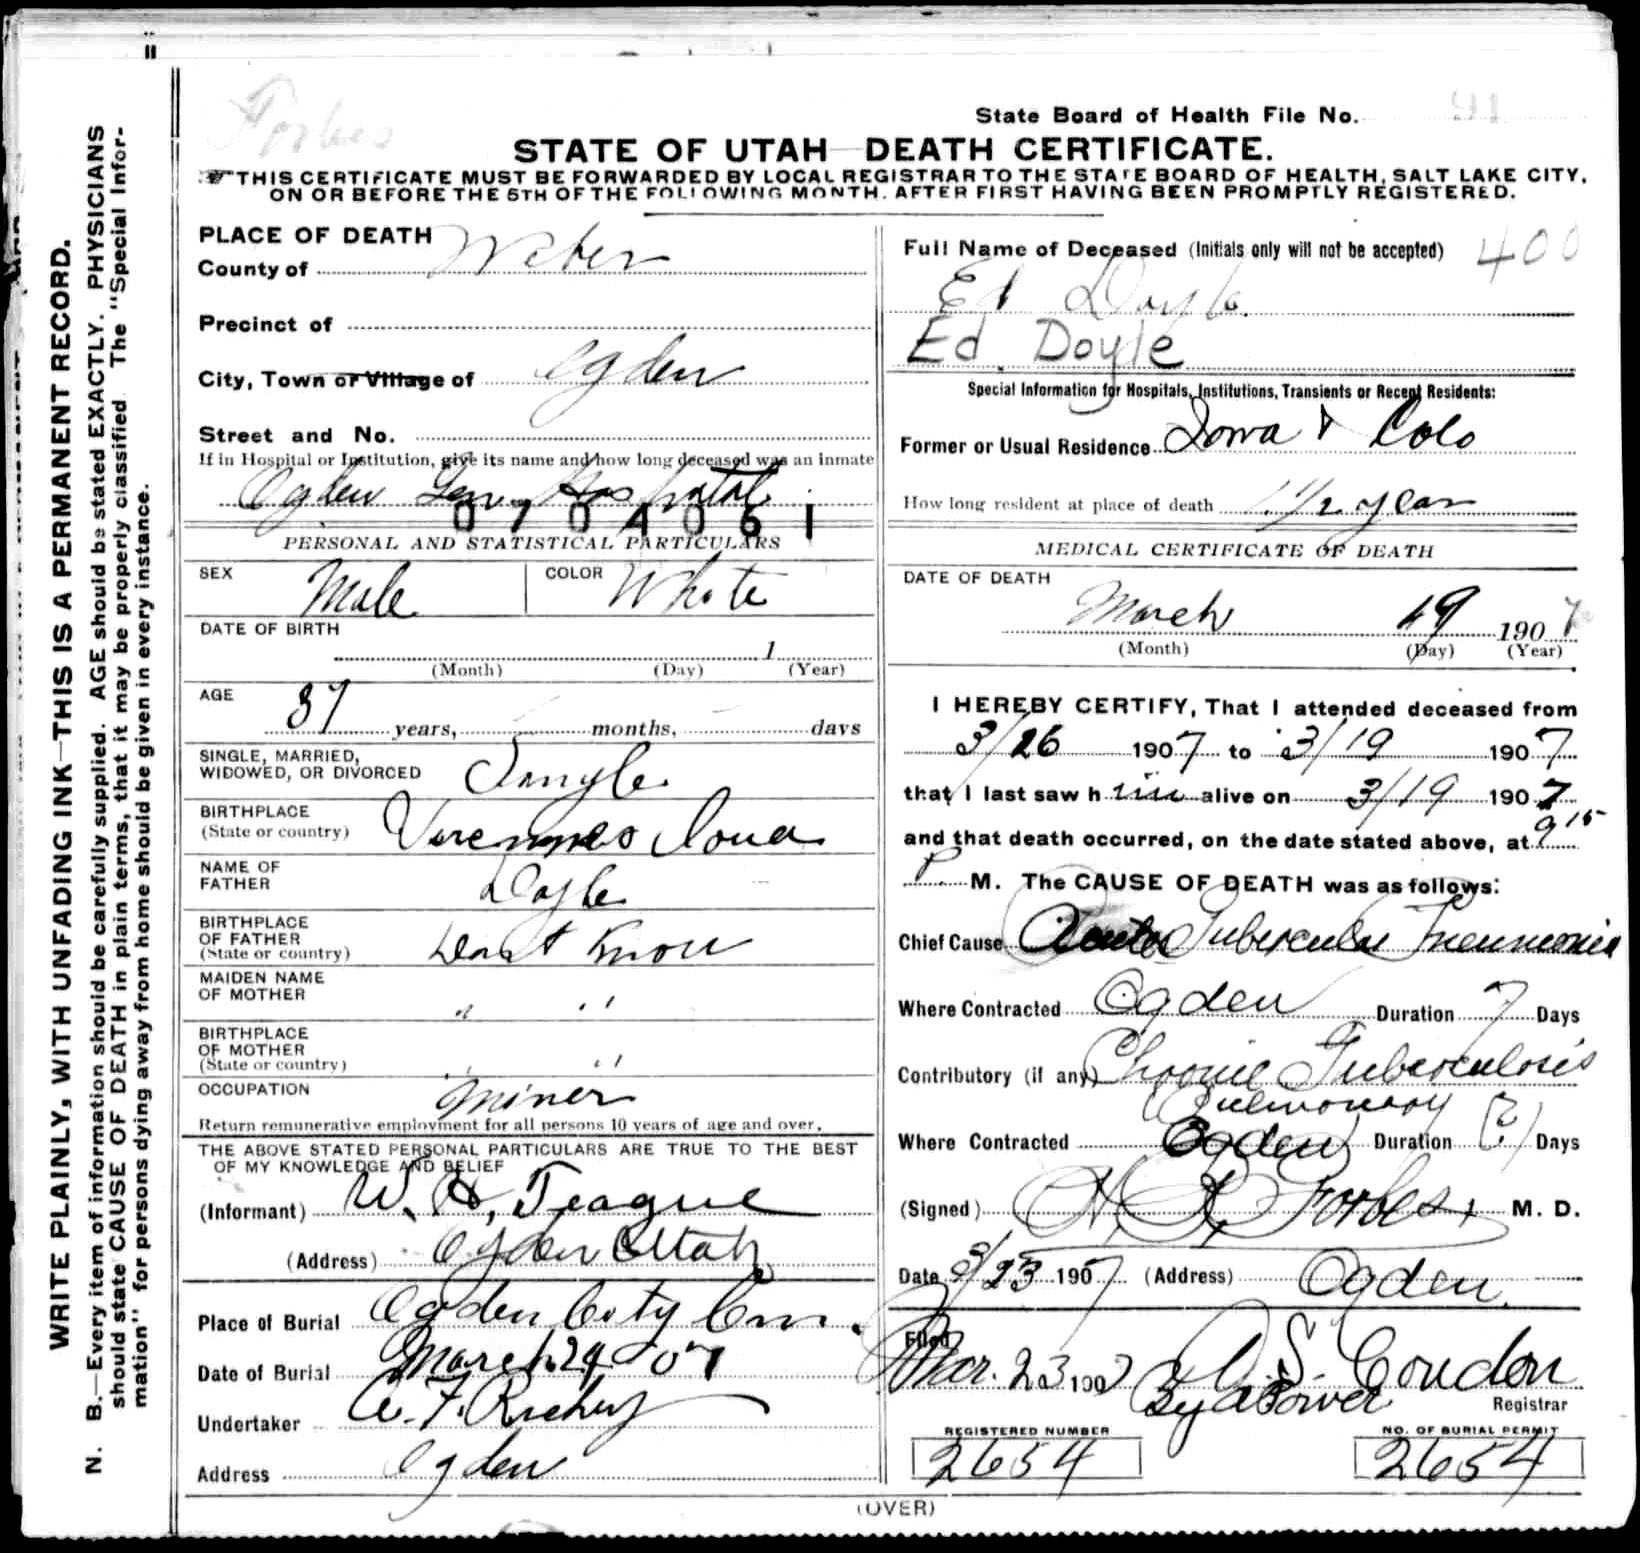 Forbes
State Board of Health File No. 91
STATE OF UTAH—DEATH CERTIFICATE.
THIS CERTIFICATE MUST BE FORWARDED BY LOCAL REGISTRAR TO THE STATE BOARD OF HEALTH, SALT LAKE CITY,
ON OR BEFORE THE 5TH OF THE FOLLOWING MONTH, AFTER FIRST HAVING BEEN PROMPTLY REGISTERED.
WRITE PLAINLY, WITH UNFADING INK—THIS IS A PERMANENT RECORD.
N. B.—Every item of information should be carefully supplied. AGE should be stated EXACTLY. PHYSICIANS
should state CAUSE OF DEATH in plain terms, that it may be properly classified. The "Special Infor-
mation" for persons dying away from home should be given in every instance.
PLACE OF DEATH
County of Weber
Precinct of
City, Town or Village of Ogden
Street and No.
If in Hospital or Institution, give its name and how long deceased was an inmate
Ogden Gen. Hospital
0704061
PERSONAL AND STATISTICAL PARTICULARS
SEX Male COLOR White
DATE OF BIRTH
1
(Month) (Day) (Year)
AGE
37 years, months, days
SINGLE, MARRIED,
WIDOWED, OR DIVORCED Single
BIRTHPLACE
(State or country) Verennes Iowa
NAME OF
FATHER Doyle
BIRTHPLACE
OF FATHER
(State or country) Dont Know
MAIDEN NAME
OF MOTHER " "
BIRTHPLACE
OF MOTHER
(State or country) " "
OCCUPATION Miner
Return remunerative employment for all persons 10 years of age and over.
THE ABOVE STATED PERSONAL PARTICULARS ARE TRUE TO THE BEST
OF MY KNOWLEDGE AND BELIEF
(Informant) W. H. Teague
(Address) Ogden Utah
Place of Burial Ogden City Cem.
Date of Burial March 24 07
Undertaker
Address Ogden
Full Name of Deceased (Initials only will not be accepted) 400
Ed Doyle.
Ed Doyle
Special Information for Hospitals, Institutions, Transients or Recent Residents:
Former or Usual Residence Iowa & Colo
How long resident at place of death 1 1/2 year
MEDICAL CERTIFICATE OF DEATH
DATE OF DEATH
March 19 1907
(Month) (Day) (Year)
I HEREBY CERTIFY, That I attended deceased from
3/26 1907 to 3/19 1907
that I last saw him alive on 3/19 1907
and that death occurred, on the date stated above, at 9 15
P. M. The CAUSE OF DEATH was as follows:
Chief Cause Acute Tubercular Pneumonia
Where Contracted Ogden Duration 7 Days
Contributory (if any) Chronic Tuberculosis
Pulmonary
Where Contracted Ogden Duration (?) Days
(Signed) Forbes M. D.
Date 3/23 1907 (Address) Ogden.
Filed
Mar. 23 1907 S. Condon
By Registrar
REGISTERED NUMBER
2654
NO. OF BURIAL PERMIT
2654
(OVER)